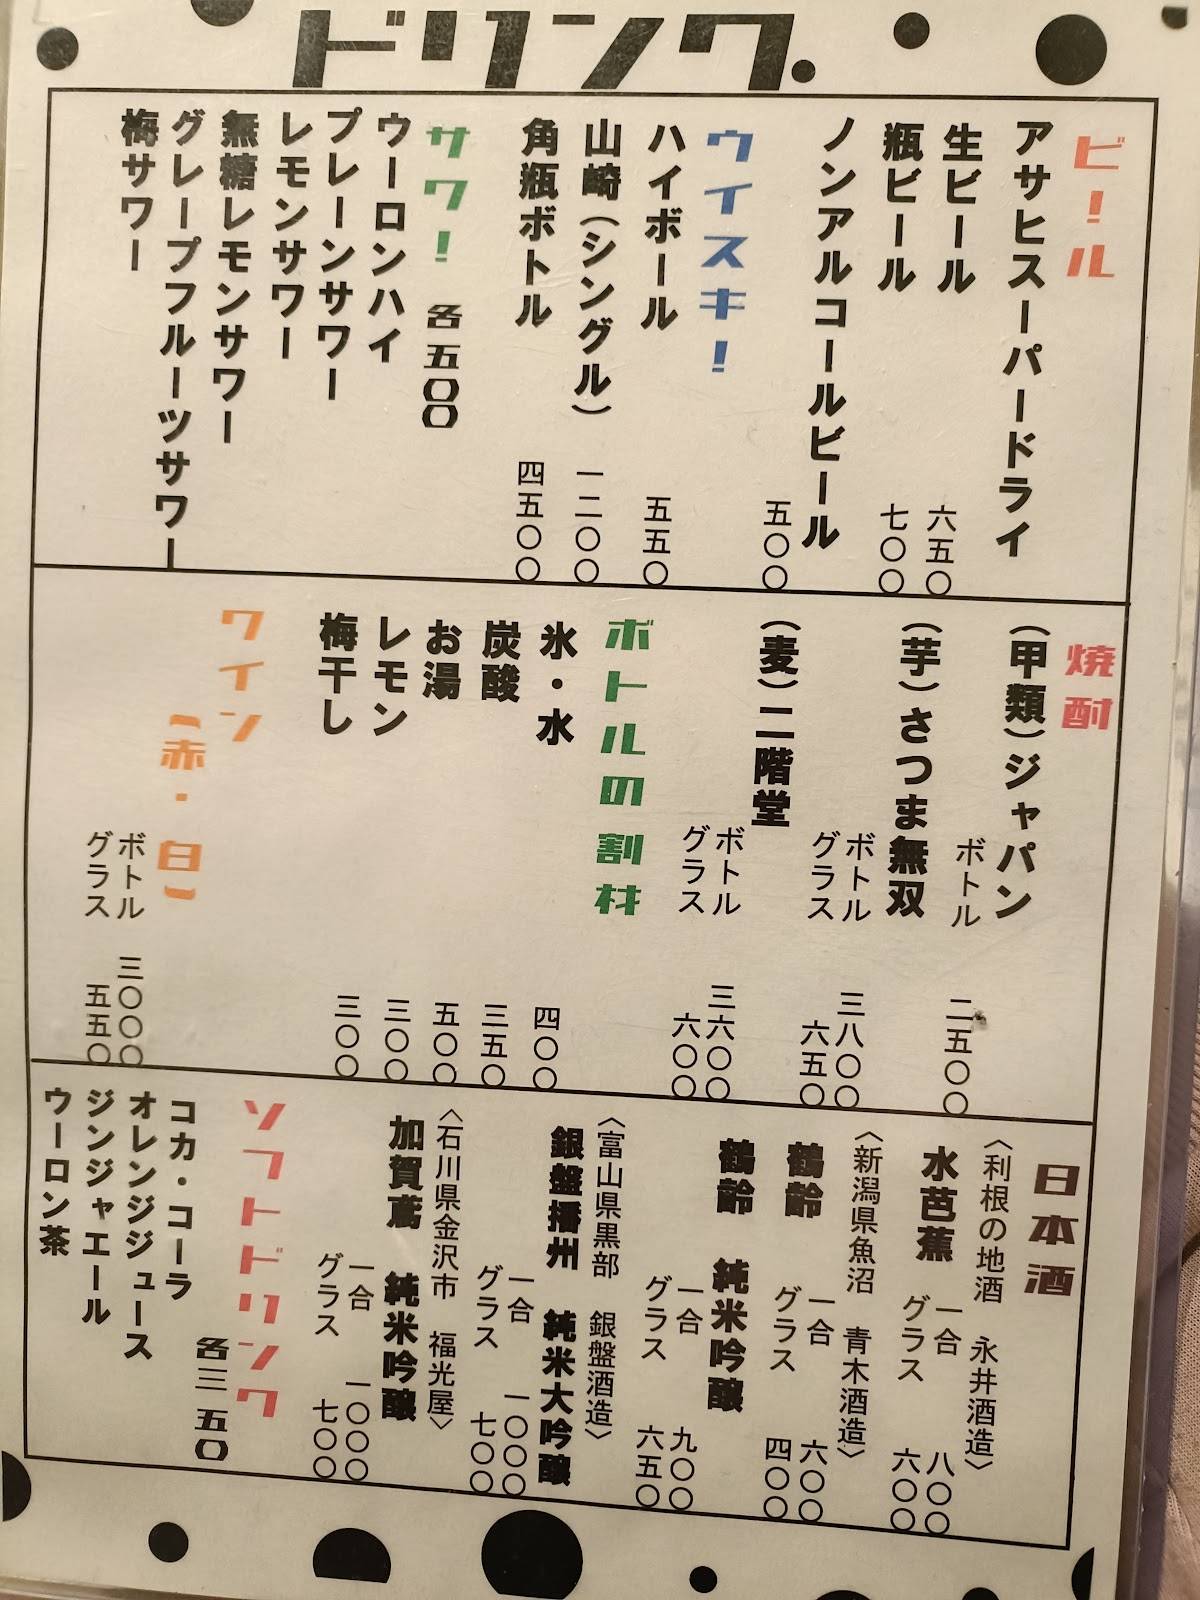 ドリンク
ビール
アサヒスーパードライ
生ビール 六五〇
瓶ビール 七〇〇
ノンアルコールビール
五〇〇
ウイスキー
ハイボール 五五〇
山崎（シングル） 一二〇〇
角瓶ボトル 四五〇〇
サワー 各五〇〇
ウーロンハイ
プレーンサワー
レモンサワー
無糖レモンサワー
グレープフルーツサワー
梅サワー
焼酎
（甲類）ジャパン
ボトル 二五〇〇
（芋）さつま無双
ボトル 三八〇〇
グラス 六五〇
（麦）二階堂
ボトル 三六〇〇
グラス 六〇〇
ボトルの割材
氷・水 四〇〇
炭酸 三五〇
お湯 五〇〇
レモン 三〇〇
梅干し 三〇〇
ワイン
（赤・白）
ボトル 三〇〇〇
グラス 五五〇
日本酒
〈利根の地酒 永井酒造〉
水芭蕉
一合 八〇〇
グラス 六〇〇
〈新潟県魚沼 青木酒造〉
鶴齢
一合 六〇〇
グラス 四〇〇
鶴齢 純米吟醸
一合 九〇〇
グラス 六五〇
〈富山県黒部 銀盤酒造〉
銀盤播州 純米大吟醸
一合 一〇〇〇
グラス 七〇〇
〈石川県金沢市 福光屋〉
加賀鳶 純米吟醸
一合 一〇〇〇
グラス 七〇〇
ソフトドリンク
各三五〇
コカ・コーラ
オレンジジュース
ジンジャエール
ウーロン茶